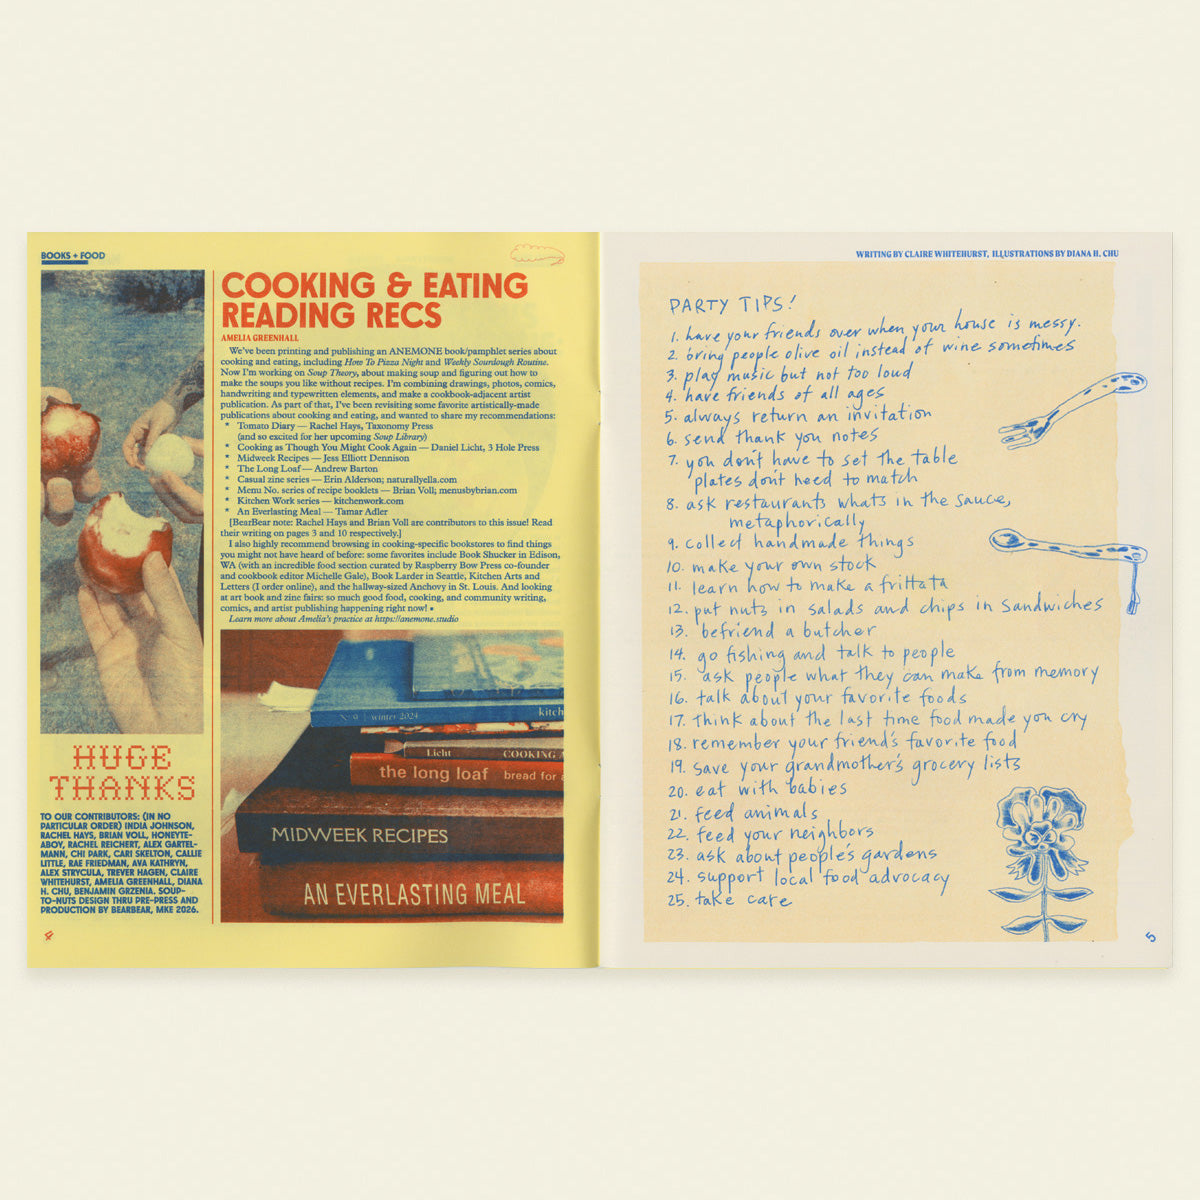 BOOKS + FOOD
COOKING & EATING
READING RECS
AMELIA GREENHALL
We've been printing and publishing an ANEMONE book/pamphlet series about
cooking and eating, including How To Pizza Night and Weekly Sourdough Routine.
Now I'm working on Soup Theory, about making soup and figuring out how to
make the soups you like without recipes. I'm combining drawings, photos, comics,
handwriting and typewritten elements, and make a cookbook-adjacent artist
publication. As part of that, I've been revisiting some favorite artistically-made
publications about cooking and eating, and wanted to share my recommendations:
* Tomato Diary — Rachel Hays, Taxonomy Press
(and so excited for her upcoming Soup Library)
* Cooking as Though You Might Cook Again — Daniel Licht, 3 Hole Press
* Midweek Recipes — Jess Elliott Dennison
* The Long Loaf — Andrew Barton
* Casual zine series — Erin Alderson; naturallyella.com
* Menu No. series of recipe booklets — Brian Voll; menusbybrian.com
* Kitchen Work series — kitchenwork.com
* An Everlasting Meal — Tamar Adler
[BearBear note: Rachel Hays and Brian Voll are contributors to this issue! Read
their writing on pages 3 and 10 respectively.]
I also highly recommend browsing in cooking-specific bookstores to find things
you might not have heard of before: some favorites include Book Shucker in Edison,
WA (with an incredible food section curated by Raspberry Bow Press co-founder
and cookbook editor Michelle Gale), Book Larder in Seattle, Kitchen Arts and
Letters (I order online), and the hallway-sized Anchovy in St. Louis. And looking
at art book and zine fairs: so much good food, cooking, and community writing,
comics, and artist publishing happening right now! •
Learn more about Amelia's practice at https://anemone.studio
No 9 | winter 2024 kitch
Licht COOKING A
the long loaf bread for a
MIDWEEK RECIPES
AN EVERLASTING MEAL
HUGE
THANKS
TO OUR CONTRIBUTORS: (IN NO
PARTICULAR ORDER) INDIA JOHNSON,
RACHEL HAYS, BRIAN VOLL, HONEYTE-
ABOY, RACHEL REICHERT, ALEX GARTEL-
MANN, CHI PARK, CARI SKELTON, CALLIE
LITTLE, RAE FRIEDMAN, AVA KATHRYN,
ALEX STRYCULA, TREVER HAGEN, CLAIRE
WHITEHURST, AMELIA GREENHALL, DIANA
H. CHU, BENJAMIN GRZENIA. SOUP-
TO-NUTS DESIGN THRU PRE-PRESS AND
PRODUCTION BY BEARBEAR, MKE 2026.
4
WRITING BY CLAIRE WHITEHURST, ILLUSTRATIONS BY DIANA H. CHU
PARTY TIPS!
1. have your friends over when your house is messy.
2. bring people olive oil instead of wine sometimes
3. play music but not too loud
4. have friends of all ages
5. always return an invitation
6. send thank you notes
7. you don't have to set the table
plates don't need to match
8. ask restaurants whats in the sauce,
metaphorically
9. collect handmade things
10. make your own stock
11. learn how to make a frittata
12. put nuts in salads and chips in sandwiches
13. befriend a butcher
14. go fishing and talk to people
15. ask people what they can make from memory
16. talk about your favorite foods
17. think about the last time food made you cry
18. remember your friend's favorite food
19. save your grandmother's grocery lists
20. eat with babies
21. feed animals
22. feed your neighbors
23. ask about people's gardens
24. support local food advocacy
25. take care
5